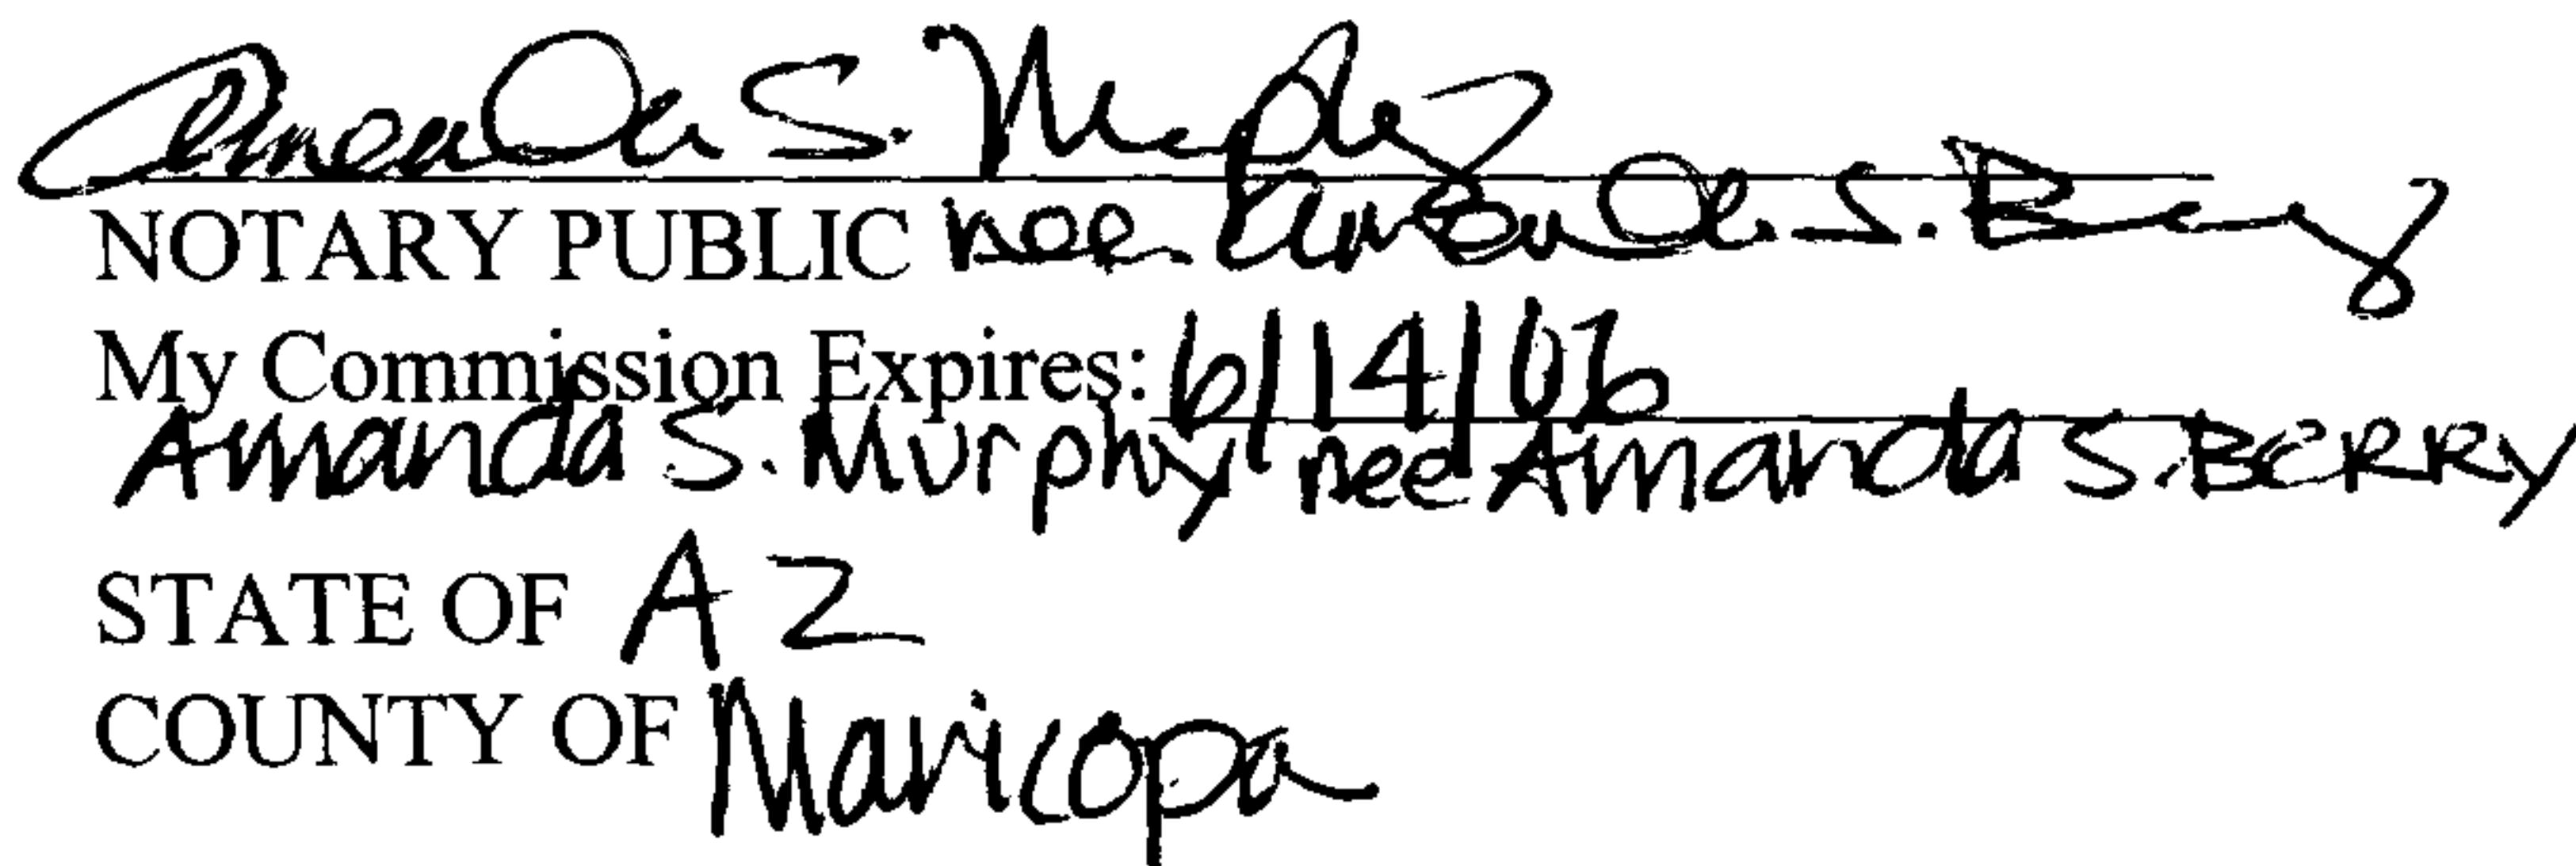 Amanda S. Murphy
NOTARY PUBLIC nee Amanda S. Berry
My Commission Expires: 6/14/06
Amanda S. Murphy nee Amanda S. BERRY
STATE OF AZ
COUNTY OF Maricopa